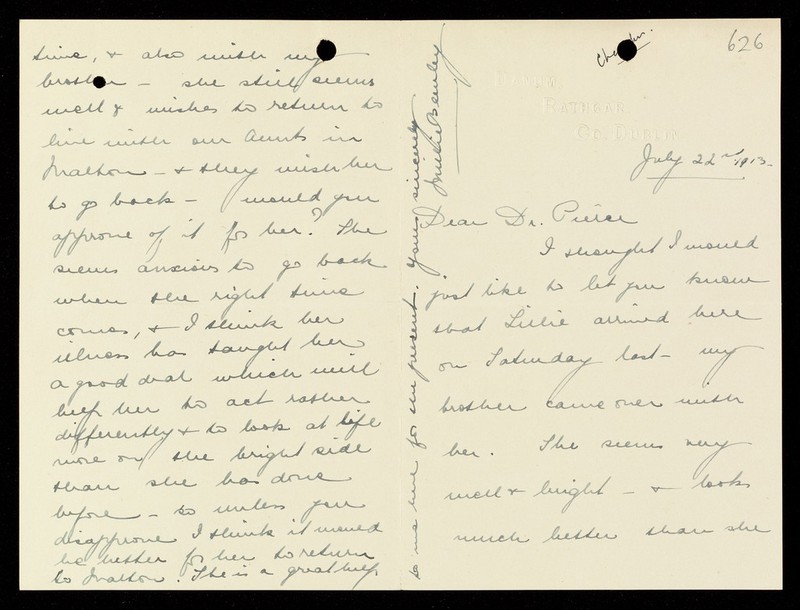 626
July 22nd 1913
Dear Dr. Pierce
I thought I would
just like to let you know
that Lillie arrived here
on Saturday last - my
brother came over with
her. She seems very
well & bright - & looks
much better than she
time, & also with my
brother - she still seems
well & wishes to return to
live with our Aunts in
Malton - & they wish her
to go back - would you
approve of it for her? She
seems anxious to go back
when the right time
comes, & I think her
illness has taught her
a good deal which will
help her to act rather
differently & to look at life
more on the bright side
than she has done
before - so unless you
disapprove I think it would
be better for her to return
to Malton. She is a great help
to me here for the present. Yours sincerely
RATHGAR
CO. DUBLIN